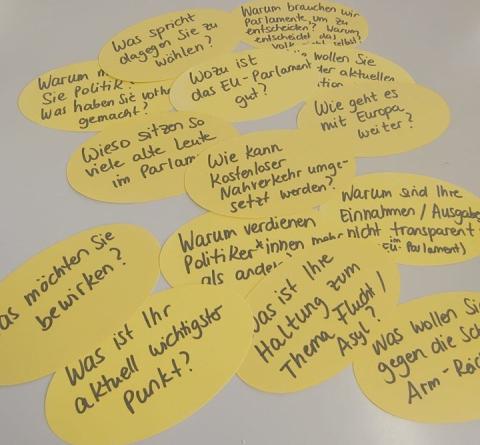 Was spricht
dagegen Sie zu
wählen?
Warum brauchen wir
Parlamente, um zu
entscheiden? Warum
entscheidet das
Volk nicht selbst?
Warum
Sie Politik?
Was haben Sie
gemacht?
Wozu ist
das EU-Parlament
gut?
wollen Sie
der aktuellen
Wie geht es
mit Europa
weiter?
Wieso sitzen so
viele alte Leute
im
Wie kann
Kostenloser
Nahverkehr umge-
setzt werden?
Warum sind Ihre
Einnahmen / Ausgaben
nicht transparent
(im
EU-Parlament)
Warum verdienen
Politiker*innen mehr
als
möchten Sie
bewirken?
Was ist Ihr
aktuell wichtigster
Punkt?
Was ist Ihre
Haltung zum
Thema Flucht /
Asyl?
Was wollen Sie
gegen die
Arm-